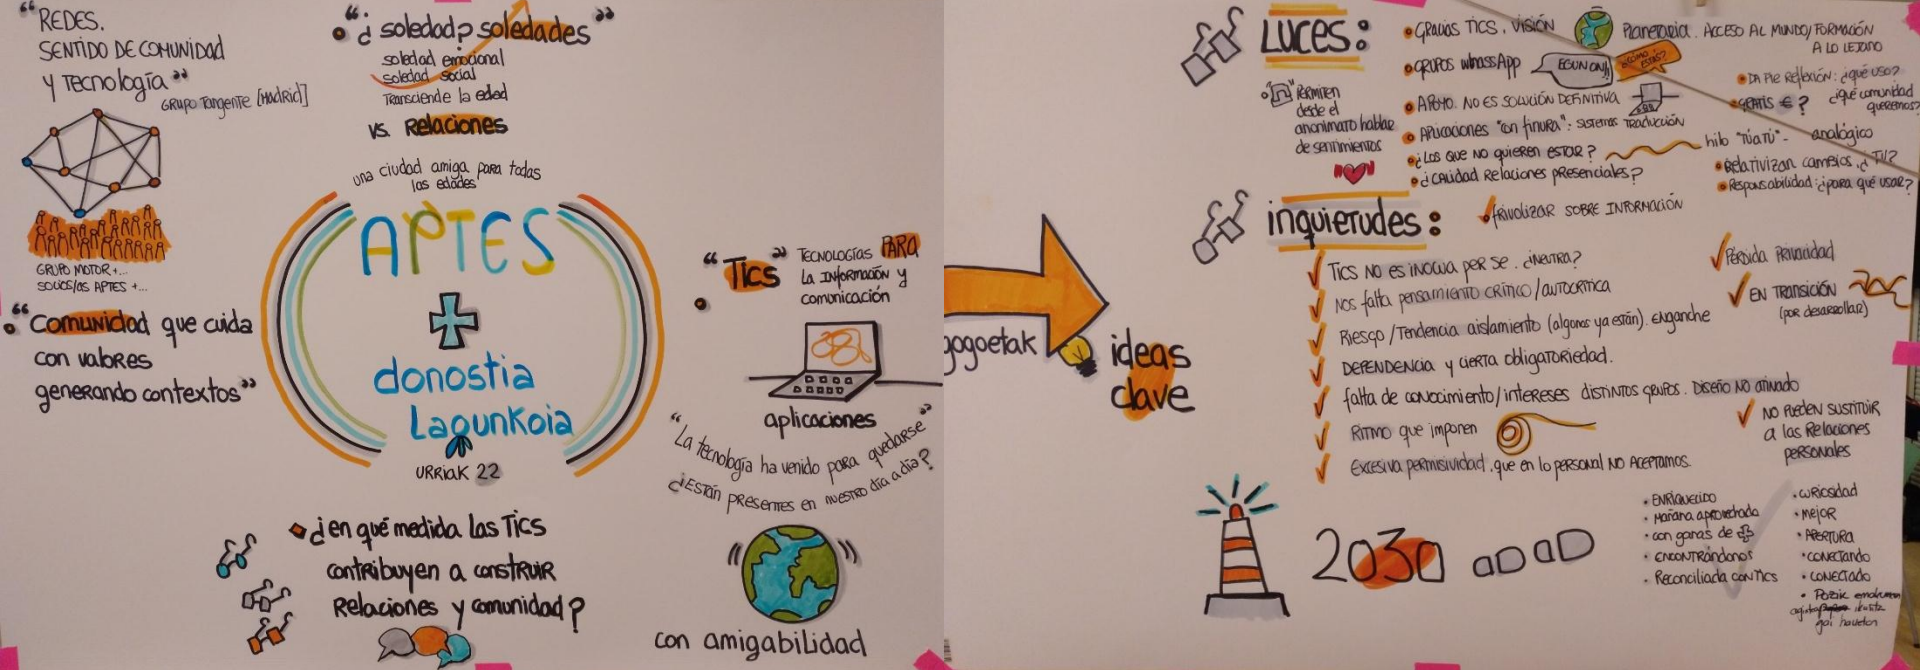 "REDES.
SENTIDO DE COMUNIDAD
Y TECNOLOGÍA"
GRUPO TANGENTE [MADRID]
GRUPO MOTOR +...
SOCIOS/AS APTES +...
"Comunidad que cuida
con valores
generando contextos"
"¿soledad? soledades"
soledad emocional
soledad social
Transciende la edad
vs. Relaciones
una ciudad amiga para todas
las edades
APTES
+
donostia
Lagunkoia
URRIAK 22
¿en qué medida las Tics
contribuyen a construir
Relaciones y comunidad?
"Tics"
TECNOLOGÍAS PARA
la INFORMACIÓN y
comunicación
aplicaciones
"La tecnología ha venido para quedarse"
¿ESTÁN PRESENTES en nuestro día a día?
con amigabilidad
gogoetak
ideas
clave
LUCES:
PERMITEN
desde el
anonimato hablar
de sentimientos
GRACIAS TICS. VISIÓN
Planetaria. ACCESO AL MUNDO/FORMACIÓN
A LO LEJANO
GRUPOS whassApp
EGUN ON!!
¿CÓMO ESTÁS?
APOYO. NO ES SOLUCIÓN DEFINITIVA
APLICACIONES "con finura": SISTEMAS TRADUCCIÓN
¿LOS QUE NO QUIEREN ESTAR?
¿CALIDAD RELACIONES PRESENCIALES?
DA PIE REFLEXIÓN: ¿qué uso?
¿qué comunidad
queremos?
GRATIS € ?
hilo "TÚaTÚ" - analógico
Relativizan cambios. ¿TV?
Responsabilidad: ¿para qué usar?
inquietudes:
frivolizar SOBRE INFORMACIÓN
TICS NO ES INOCUA PER SE. ¿NEUTRA?
NOS falta pensamiento crítico/autocrítica
Riesgo/Tendencia aislamiento (algunos ya están). Enganche
DEPENDENCIA y cierta obligatoriedad.
falta de conocimiento/intereses DISTINTOS grupos. Diseño NO atinado
RITMO que imponen
Excesiva permisividad. que en lo personal NO ACEPTAMOS.
Pérdida Privacidad
EN TRANSICIÓN
(por desarrollar)
NO PUEDEN SUSTITUIR
a las Relaciones
personales
2030
ENRIQUECIDO
Mañana aprovechada
con ganas de +
ENCONTRÁNDONOS
Reconciliada con TICs
curiosidad
MEJOR
APERTURA
CONECTANDO
CONECTADO
Pozik emakumen
ikusita
gai hauetan